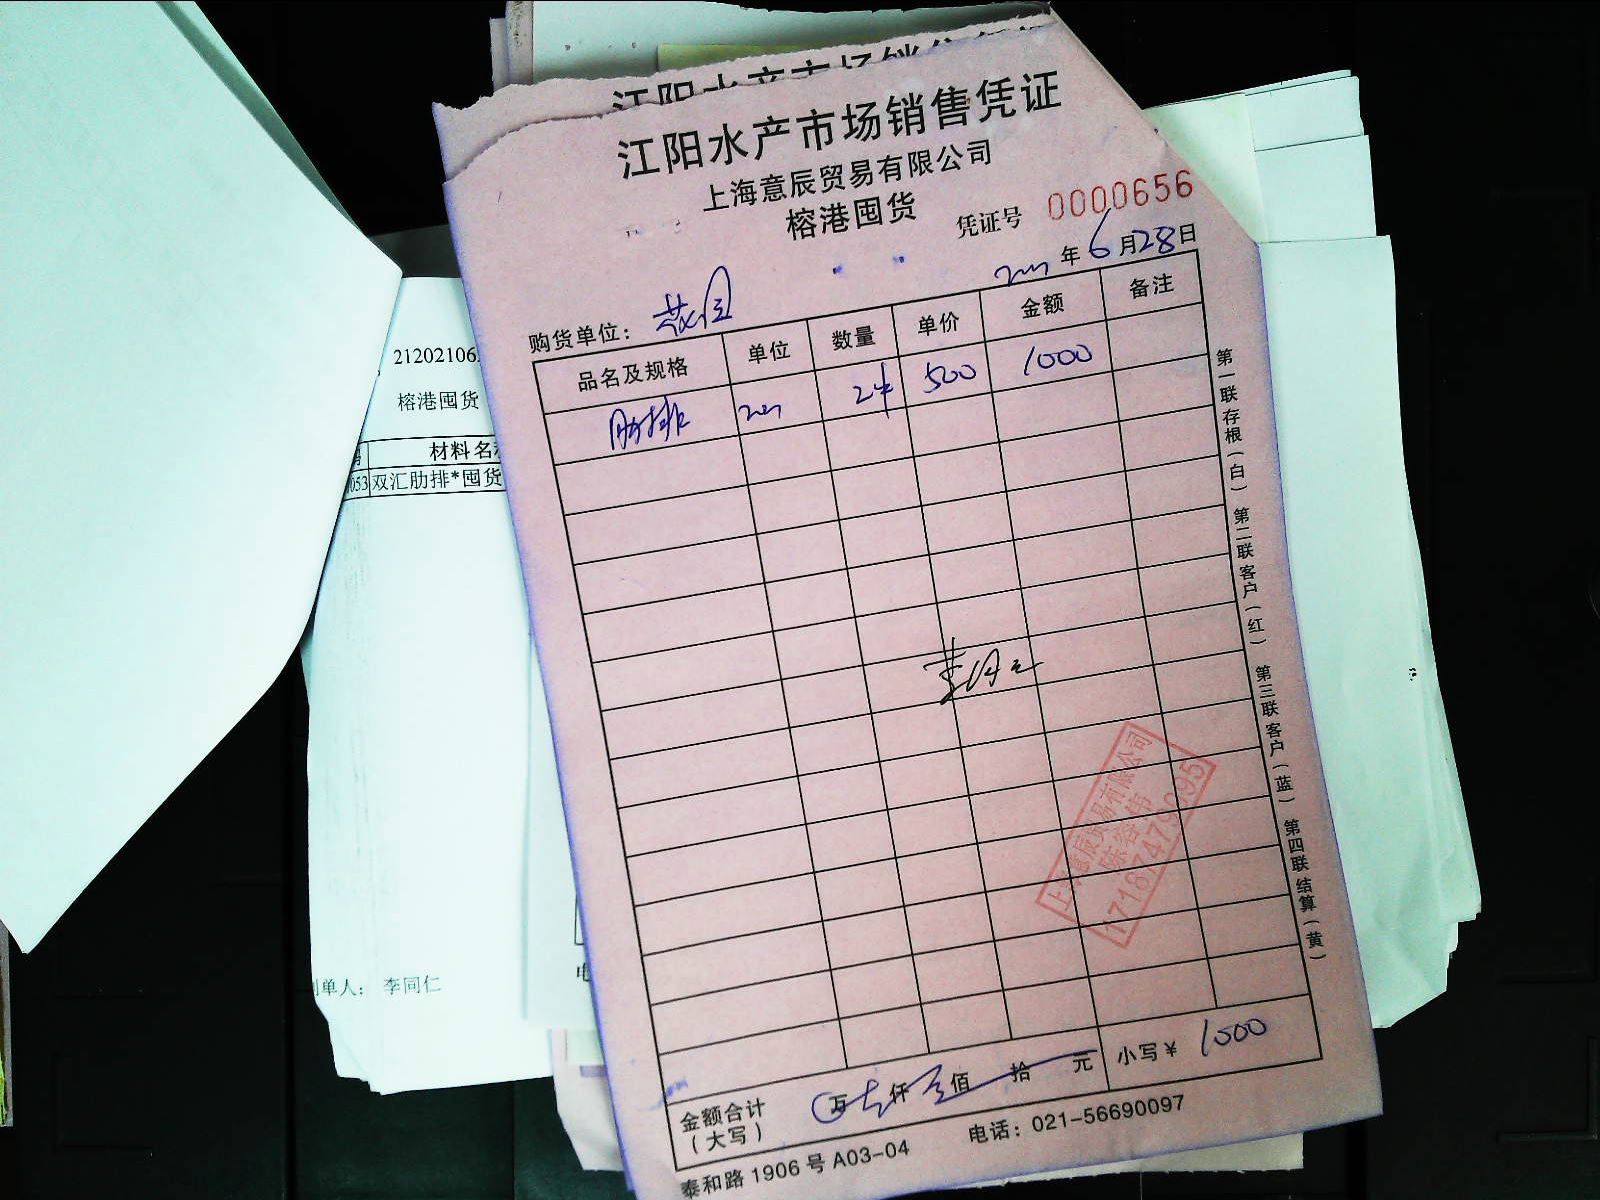 江阳水产市场销售凭证
江阳水产市场销售凭证
上海意辰贸易有限公司
榕港囤货
凭证号 0000656
年 6 月 28 日
购货单位：
品名及规格 单位 数量 单价 金额 备注
肋排 24 500 1000
第一联存根（白） 第二联客户（红） 第三联客户（蓝） 第四联结算（黄）
上海意辰贸易有限公司
17187479095
金额合计（大写） 万 仟 佰 拾 元 小写￥ 1000
泰和路1906号A03-04 电话：021-56690097
21202106
榕港囤货
材料名称
053 双汇肋排*囤货
制单人： 李同仁